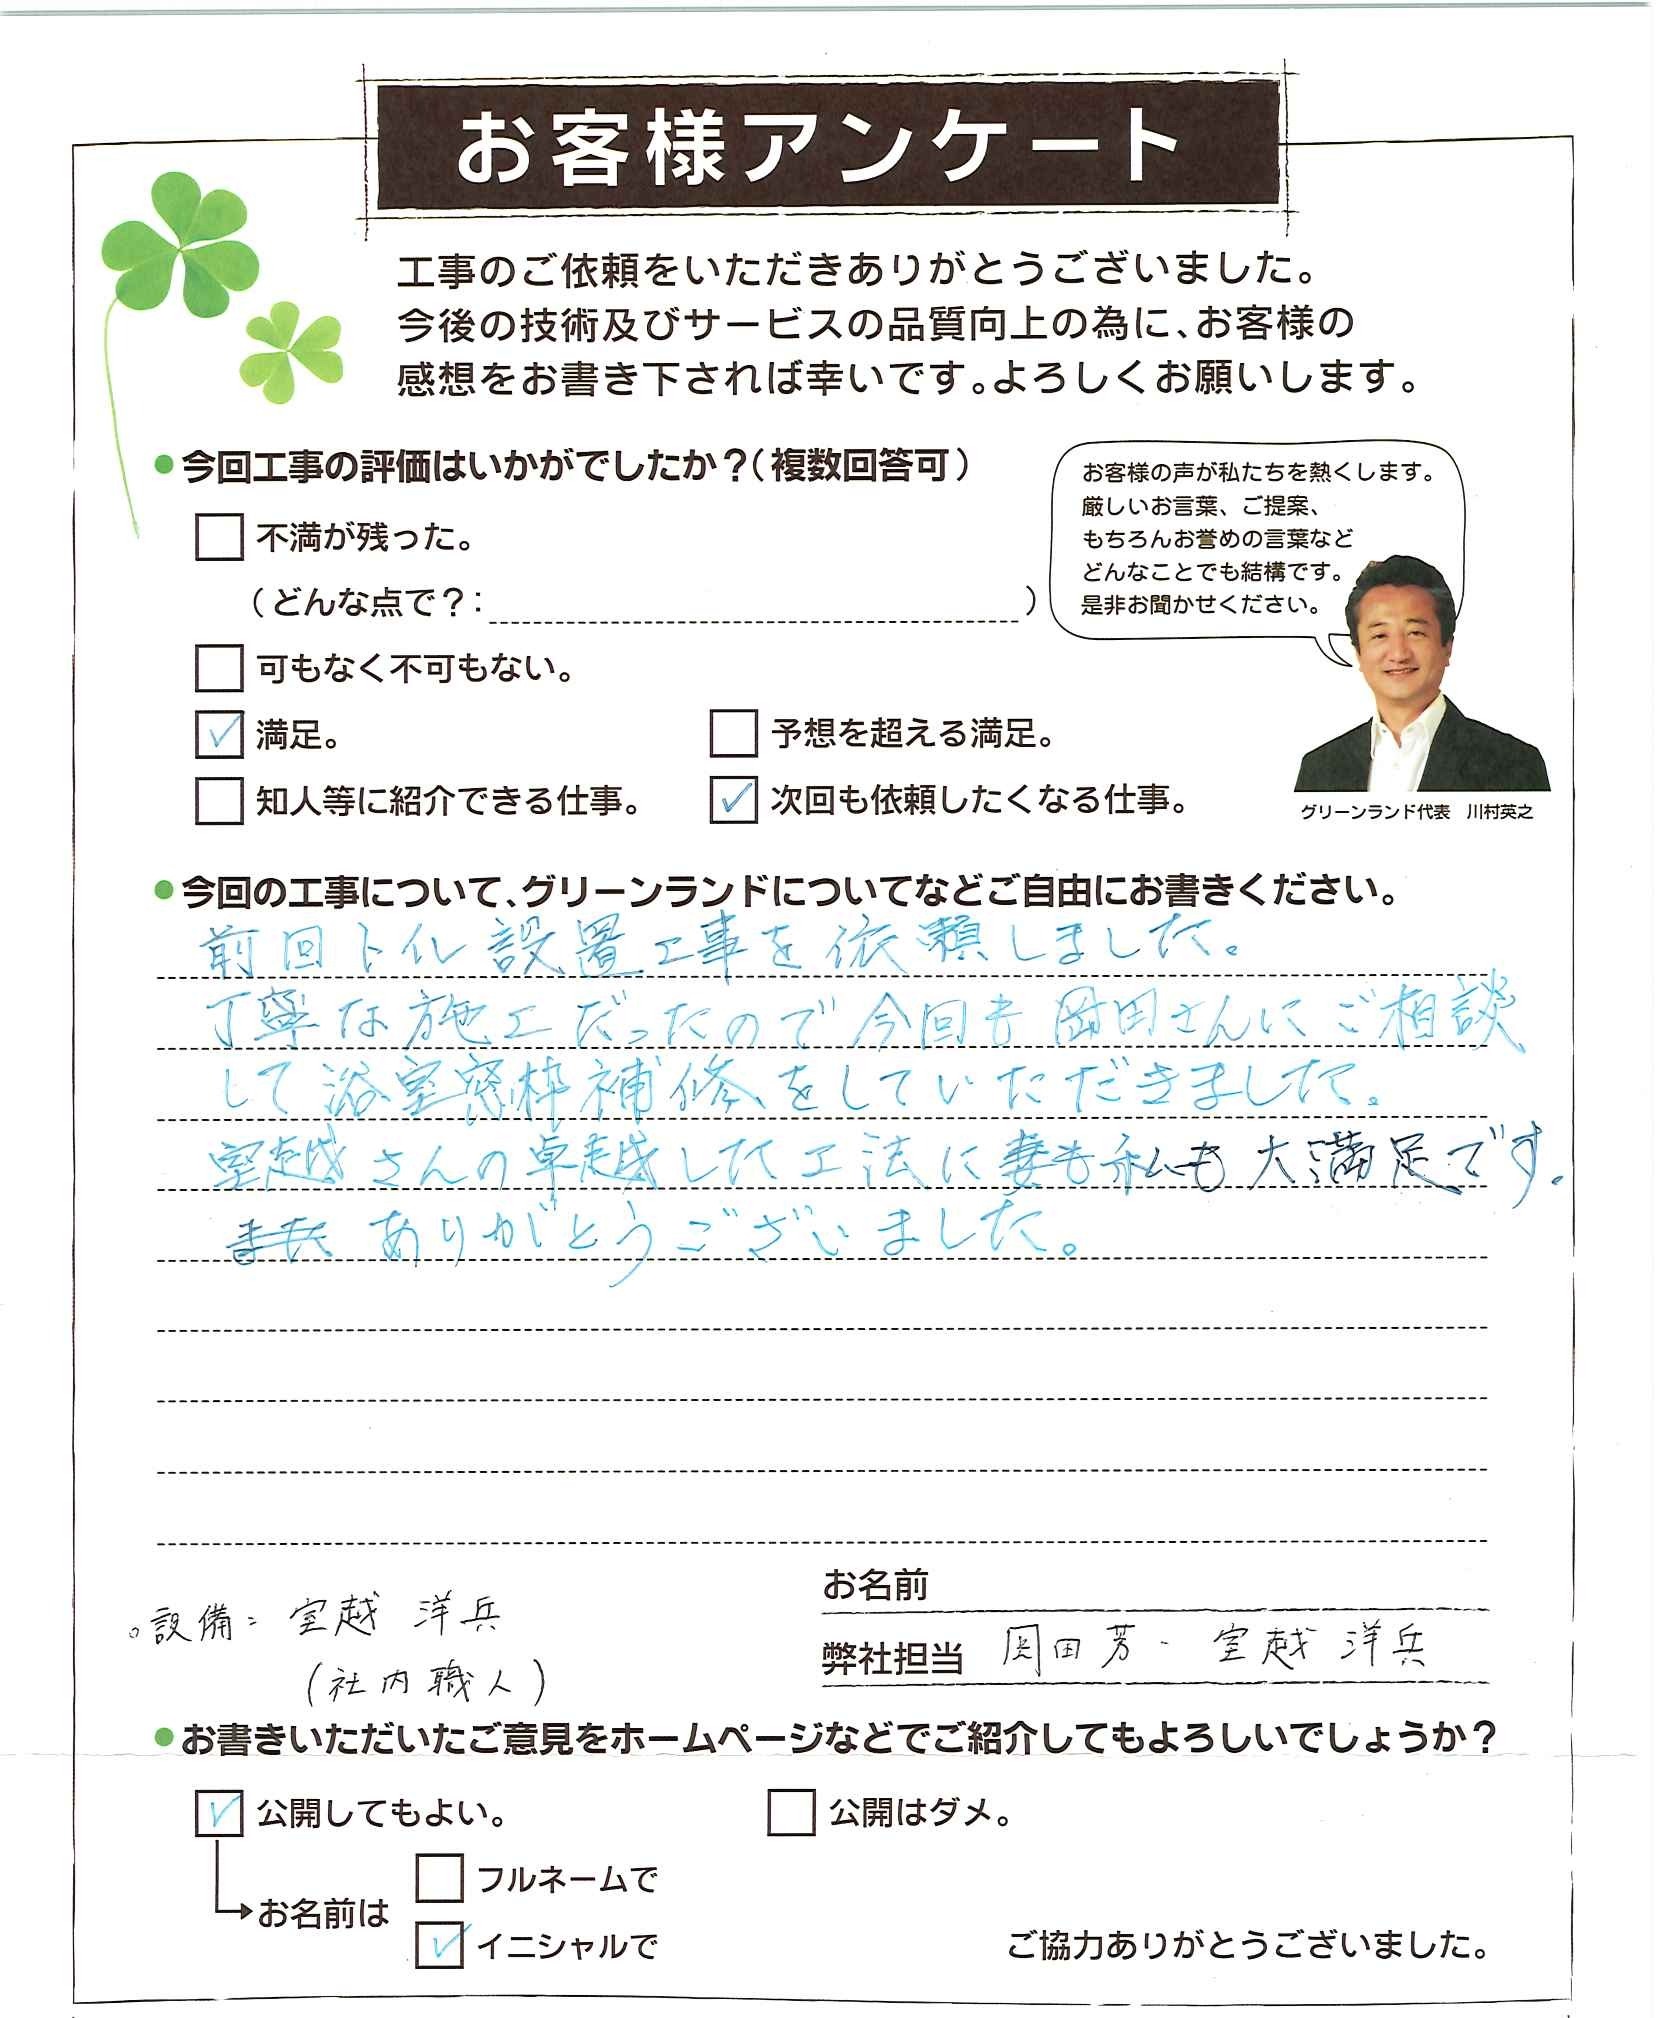 お客様アンケート
工事のご依頼をいただきありがとうございました。
今後の技術及びサービスの品質向上の為に、お客様の
感想をお書き下されば幸いです。よろしくお願いします。
●今回工事の評価はいかがでしたか？（複数回答可）
お客様の声が私たちを熱くします。
厳しいお言葉、ご提案、
もちろんお誉めの言葉など
どんなことでも結構です。
是非お聞かせください。
不満が残った。
（どんな点で？：　）
可もなく不可もない。
✓ 満足。
予想を超える満足。
知人等に紹介できる仕事。
✓ 次回も依頼したくなる仕事。
グリーンランド代表　川村英之
●今回の工事について、グリーンランドについてなどご自由にお書きください。
前回トイレ設置工事を依頼しました。
丁寧な施工だったので今回も岡田さんにご相談
して浴室窓枠補修をしていただきました。
室越さんの卓越した工法に妻も私も大満足です。
ありがとうございました。
お名前
。設備：室越 洋兵
（社内職人）
弊社担当 岡田芳・室越 洋兵
●お書きいただいたご意見をホームページなどでご紹介してもよろしいでしょうか？
✓ 公開してもよい。
公開はダメ。
お名前は
フルネームで
✓ イニシャルで
ご協力ありがとうございました。